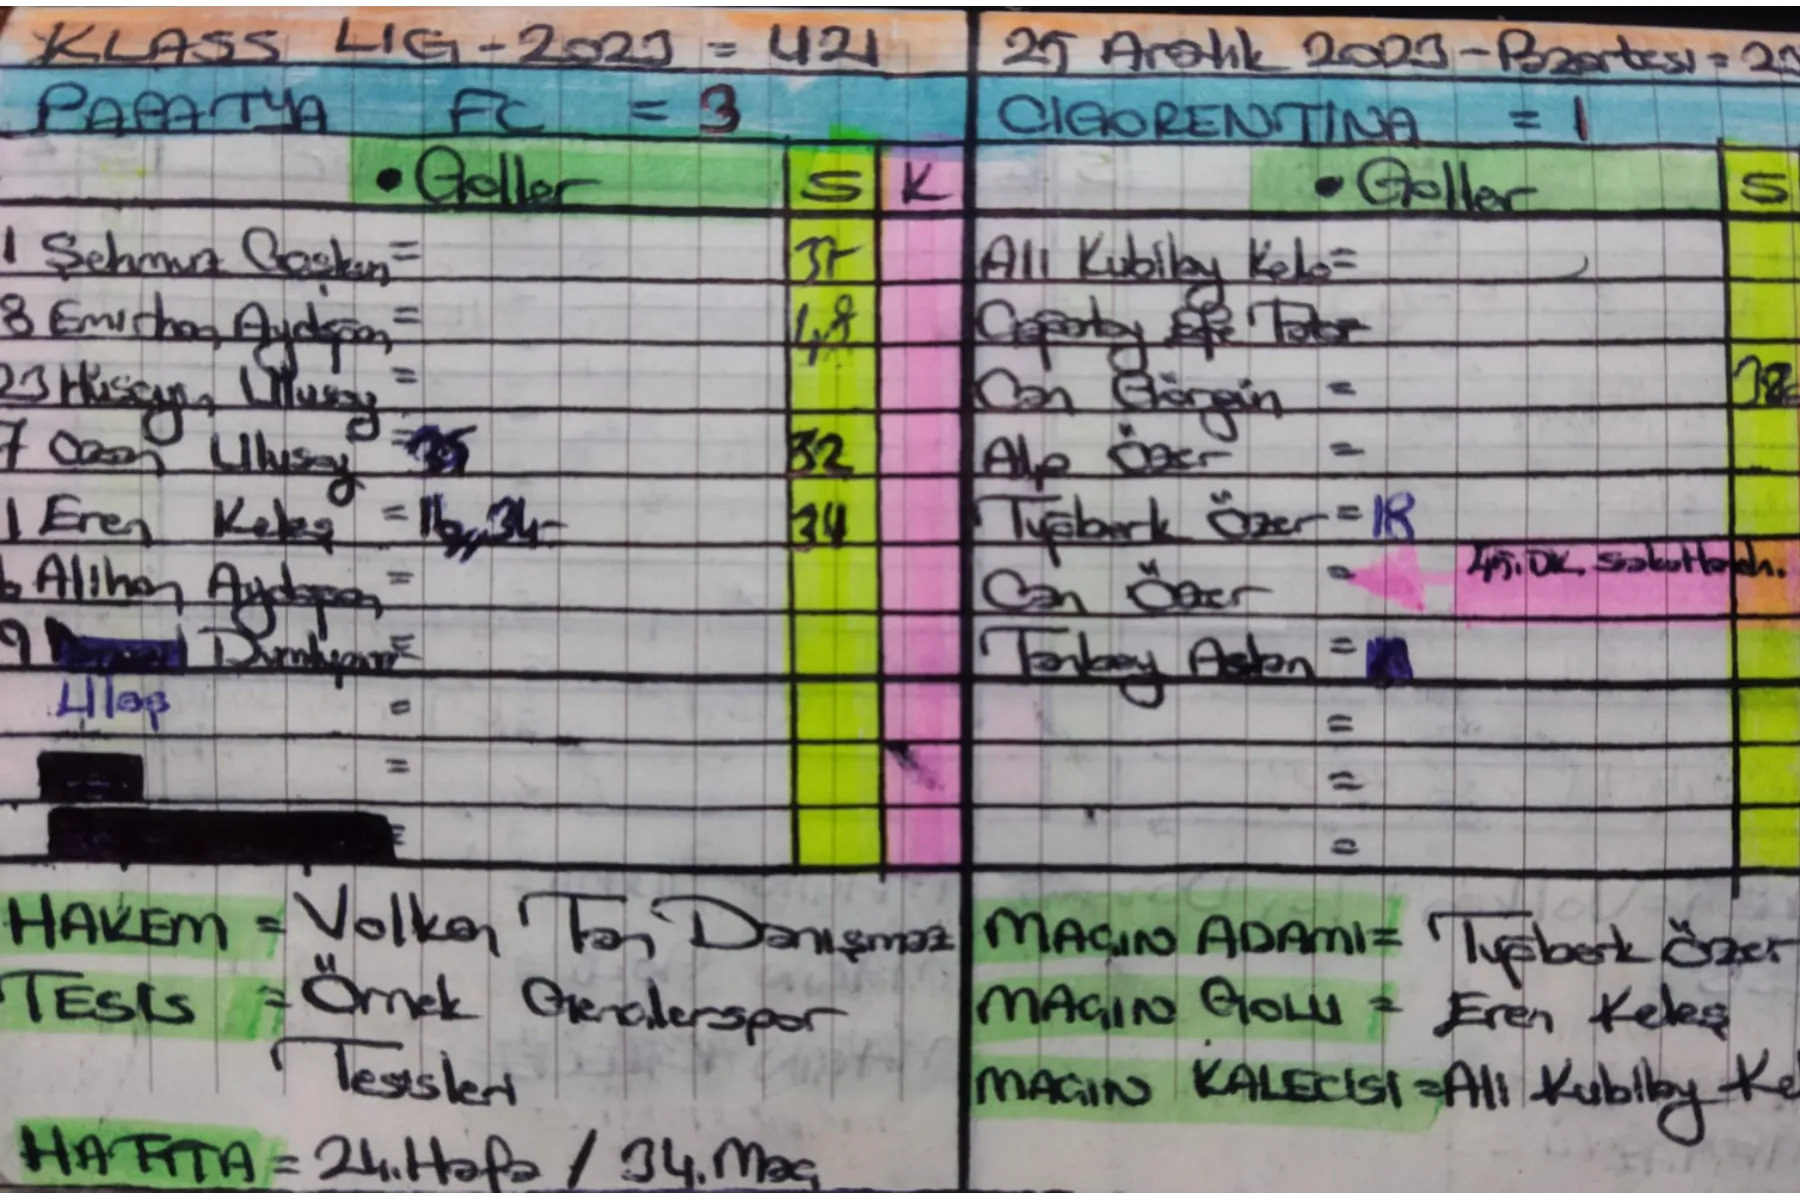 KLASS LIG - 2023 = 421
25 Aralık 2023 - Pazartesi =
PAPATYA FC = 3
CIGORENTINA = 1
• Goller S K
• Goller S
1 Şehmuz Coşkun =
Ali Kubilay Kele=
8 Emirhan Aydoğan =
Efe
23 Hüseyin Ulusoy =
Can Görgün =
7 Ozan Ulusoy = 35 32
Alp Özer =
1 Eren Keleş = 16, 34 34
Tuğberk Özer = 18
Alihan Aydoğan =
Can Özer = 45. DK. Sakatlandı.
9
Tanbey Aslan =
Ulaş =
=
=
=
=
=
HAKEM = Volkan Tan Danışmaz
TESİS = Örnek Gençlerspor
Tesisleri
HAFTA = 24. Hafta / 34. Maç
MAÇIN ADAMI = Tuğberk Özer
MAÇIN GOLÜ = Eren Keleş
MAÇIN KALECİSİ = Ali Kubilay